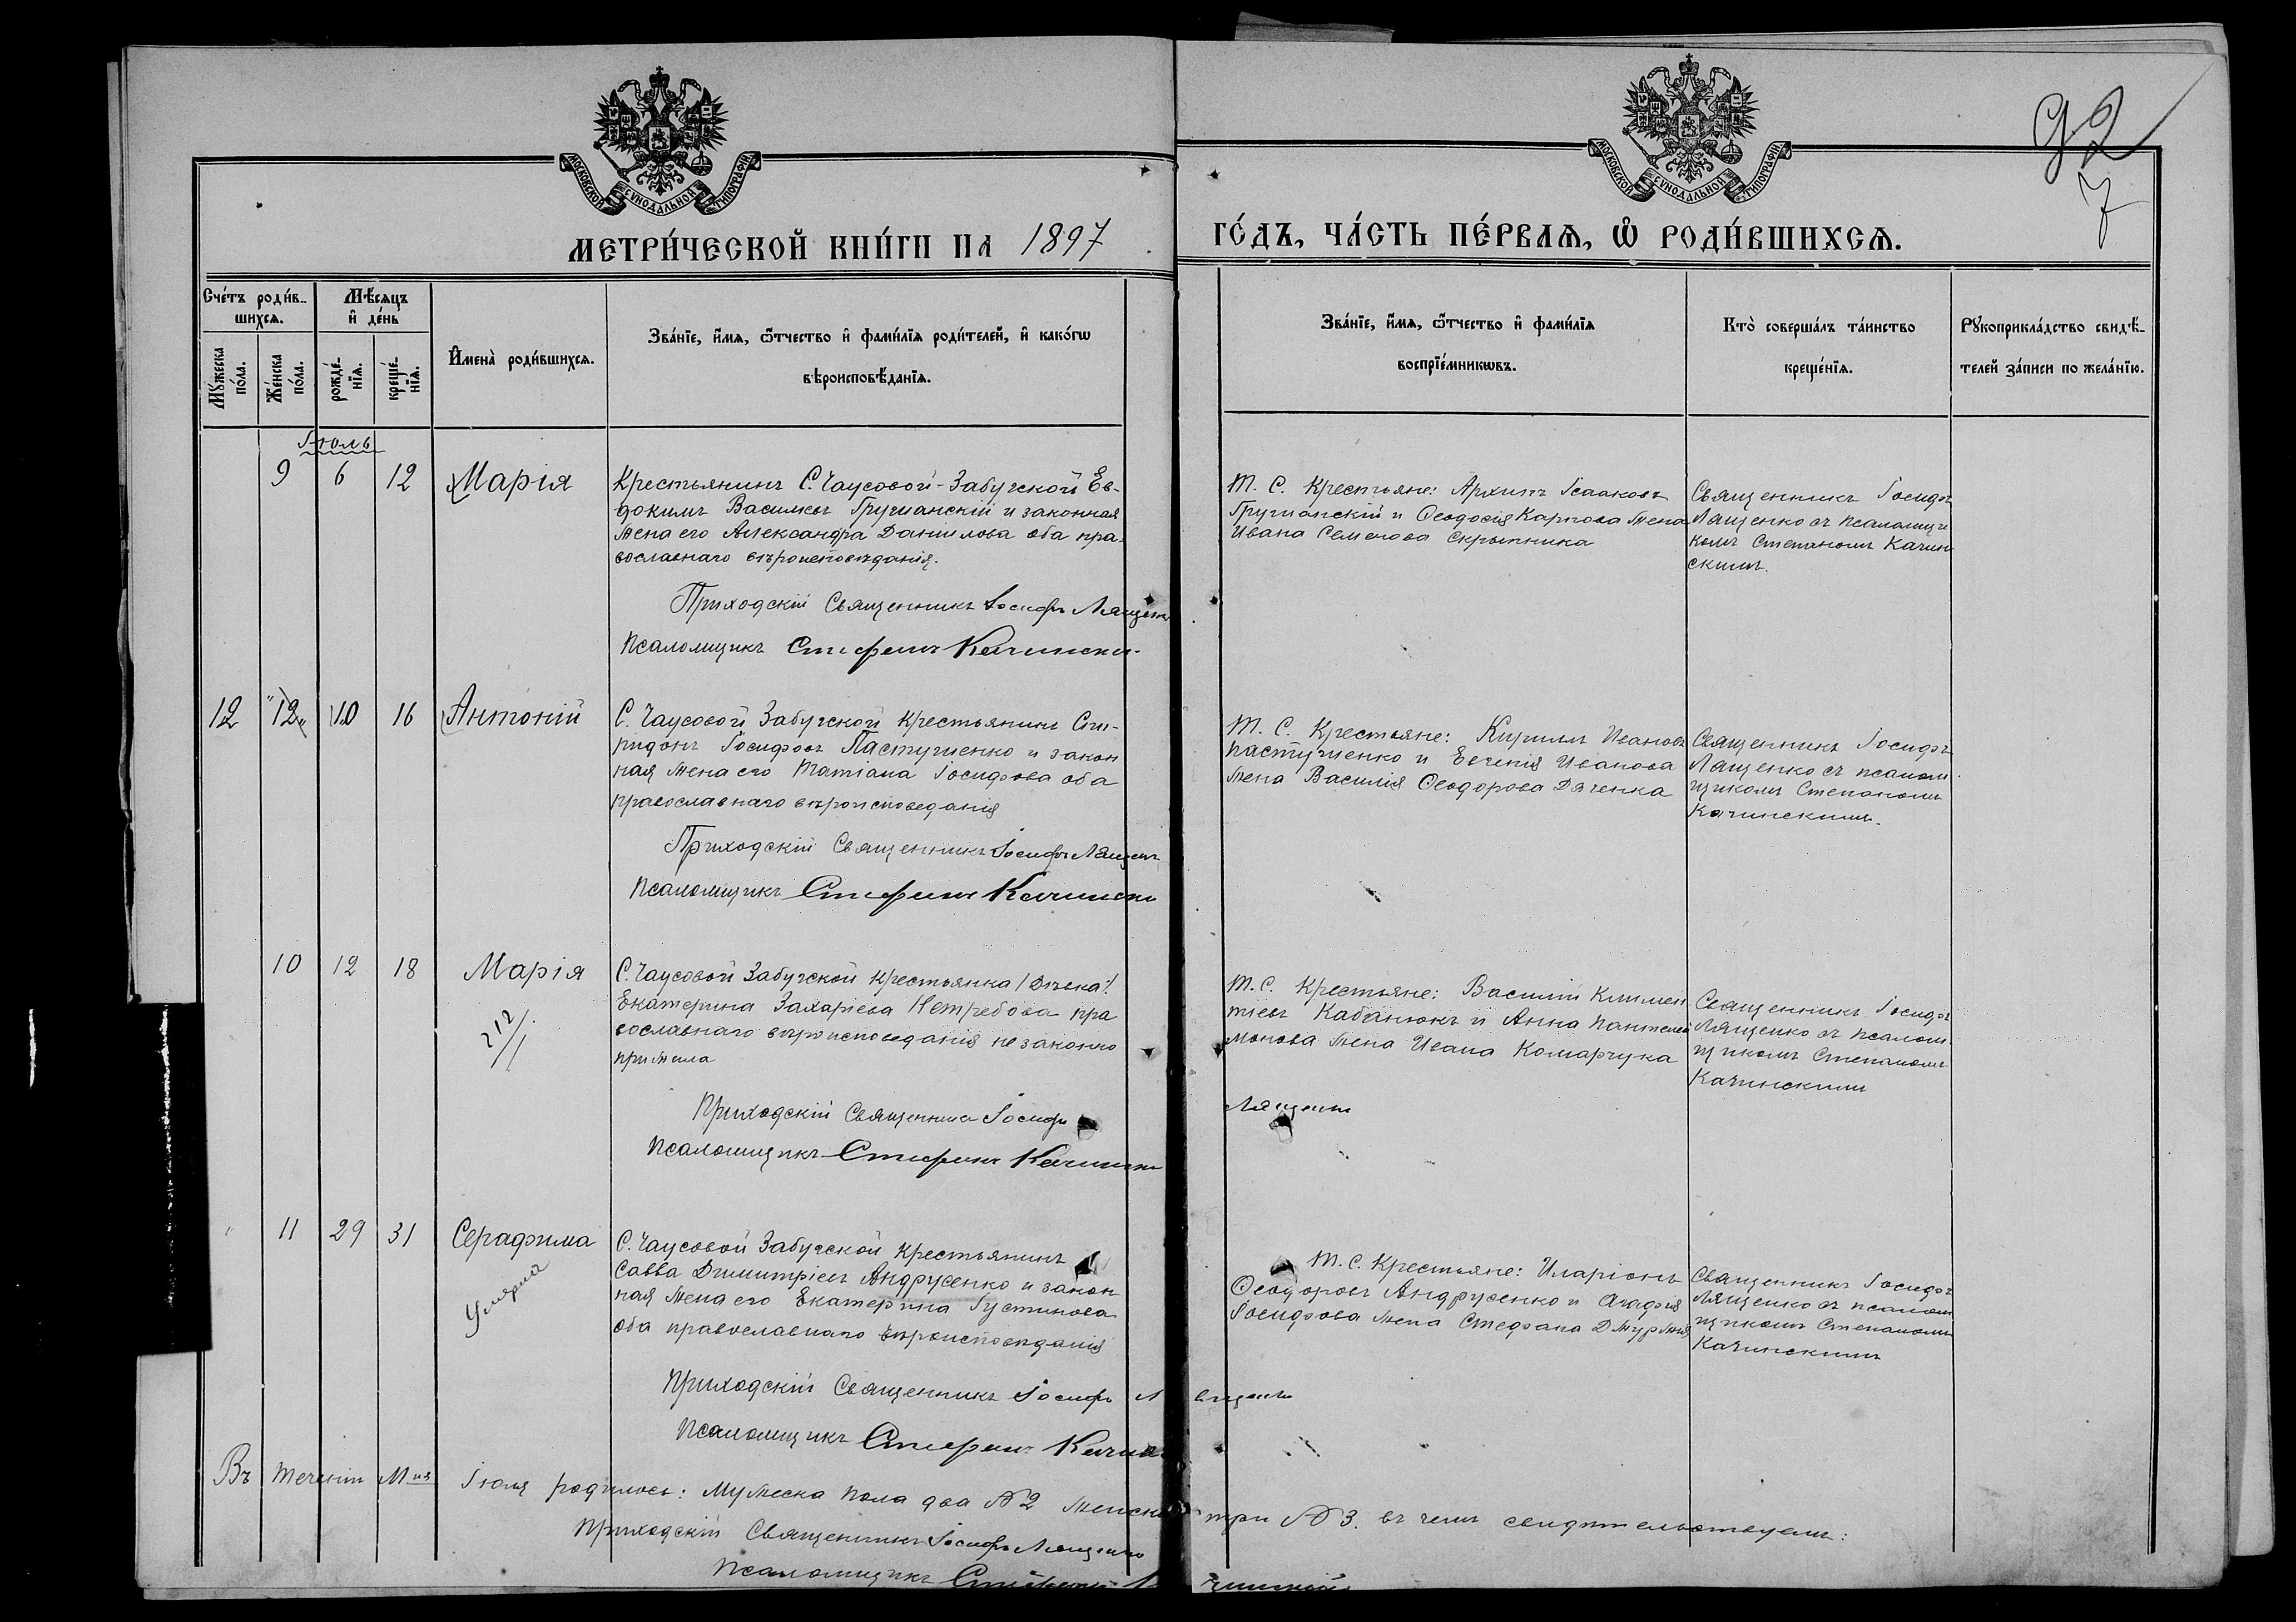 МОСКОВСКОЙ СѴНОДАЛЬНОЙ ТИПОГРАФІИ
МОСКОВСКОЙ СѴНОДАЛЬНОЙ ТИПОГРАФІИ
92
7
МЕТРИ́ЧЕСКОЙ КНИ́ГИ НА 1897 ГО́ДЪ, ЧА́СТЬ ПЕ́РВАѦ, Ѽ РОДИ́ВШИХСѦ.
Сче́тъ роди́в-
шихсѧ.
Мѣ́сѧцъ
и҆ де́нь
Мꙋ́жеска
по́ла.
Же́нска
по́ла.
рожде́-
нїѧ.
креще́-
нїѧ.
И҆мена̀ роди́вшихсѧ.
Зва́нїе, и҆́мѧ, ѻ҆́тчество и҆ фами́лїѧ роди́телей, и҆ како́гѡ
вѣроисповѣ́данїѧ.
Зва́нїе, и҆́мѧ, ѻ҆́тчество и҆ фами́лїѧ
воспрїе́мникѡвъ.
Кто̀ соверша́лъ та́инство
креще́нїѧ.
Рꙋкоприкла́дство свидѣ́-
телей за́писи по жела́нїю.
Іюль
9 6 12 Марія
Крестьянинъ С. Чаусовой-Забугской Ев-
докимъ Васильевъ Гручианскій и законная
жена его Александра Даніилова оба пра-
вославнаго вѣроисповѣданія.
Приходскій Священникъ Іосифъ Лященко
Псаломщикъ Стефанъ Качински
Т. С. Крестьяне: Архипъ Исааковъ
Гручианскій и Ѳеодосія Карпова жена
Ивана Семенова Скрыпника
Священникъ Іосифъ
Лященко съ псаломщи
комъ Степаномъ Качин
скимъ.
12 "12" 10 16 Антоній
С. Чаусовой Забугской крестьянинъ Спи-
ридонъ Іосифовъ Пастушенко и закон
ная жена его Татіана Іосифова оба
православнаго вѣроисповеданія
Приходскій Священникъ Іосифъ Лященк
Псаломщикъ Стефанъ Качински
Т. С. Крестьяне: Кириллъ Ивановъ
Пастушенко и Евгенія Иванова
жена Василія Ѳеодорова Дяченка
Священникъ Іосифъ
Лященко съ псалом
щикомъ Степаномъ
Качинскимъ.
10 12 18 Марія
212/1
С. Чаусовой Забугской крестьянка /Дѣвка/.
Екатерина Захаріева Нетребова пра
вославнаго вѣроисповеданія незаконно
прижила
Приходскій Священникъ Іосифъ
Лященко
Псаломщикъ Стефанъ Качински
Т. С. Крестьяне: Василій Климен
тіевъ Кабанюкъ и Анна Пантелей
монова жена Ивана Комарчука
Священникъ Іосифъ
Лященко съ псалом
щикомъ Степаномъ
Качинскимъ
" 11 29 31 Серафима
Умерла
С. Чаусовой Забугской крестьянинъ
Савва Димитріевъ Андрусенко и закон
ная жена его Екатерина Густинова
оба православнаго вѣроисповѣданія
Приходскій Священникъ Іосифъ Лященко
Псаломщикъ Стефанъ Качин
Т. С. Крестьяне: Иларіонъ
Ѳеодоровъ Андрусенко и Агафія
Іосифова жена Стефана
Священникъ Іосифъ
Лященко съ псалом
щикомъ Степаномъ
Качинскимъ
Въ теченіи М-ца Іюля родилось: Мужеска пола два № 2 женска три № 3. въ чемъ свидѣтельствуемъ:
Приходскій Священникъ Іосифъ Лященко
Псаломщикъ Стефанъ